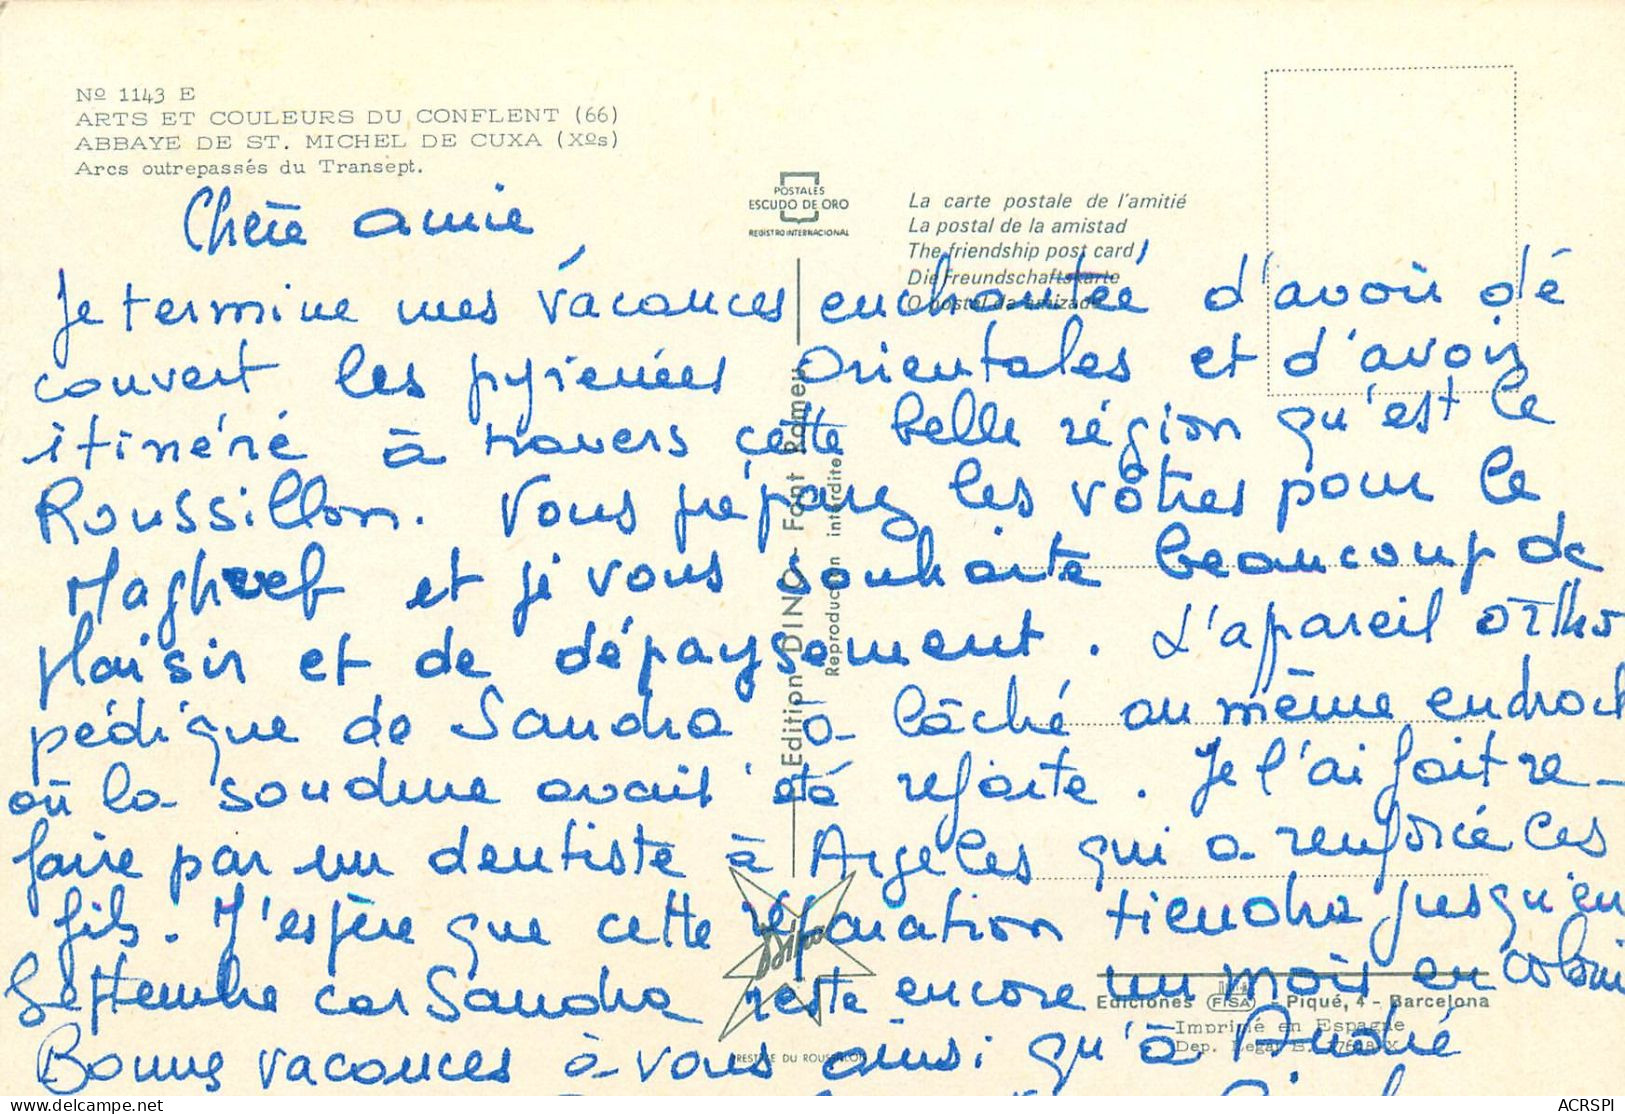 Nº 1143 E
ARTS ET COULEURS DU CONFLENT (66)
ABBAYE DE ST. MICHEL DE CUXA (Xºs)
Arcs outrepassés du Transept.
POSTALES
ESCUDO DE ORO
REGISTRO INTERNACIONAL
La carte postale de l'amitié
La postal de la amistad
The friendship post card
Die Freundschaftskarte
O postal da amizade
Chère amie
Je termine mes vacances enchantée d'avoir dé
couvert les pyrénées Orientales et d'avoir
itinéré à travers cette belle région qu'est le
Roussillon. Vous préparez les vôtres pour le
Maghreb et je vous souhaite beaucoup de
plaisir et de dépaysement. L'apareil ortho
pédique de Sandra a lâché au même endroit
où la soudure avait été refaite. Je l'ai fait re-
faire par un dentiste à Argeles qui a renforcé ces
fils. J'espère que cette réparation tiendra jusqu'en
Septembre car Sandra reste encore un mois en coloni
Bonnes vacances à vous ainsi qu'à André
Edition DINO - Font Romeu
Reproduction interdite
Dino
PRESTIGE DU ROUSSILLON
Ediciones FISA - Piqué, 4 - Barcelona
Imprimé en Espagne
Dep. Legal B.
ACRSPI